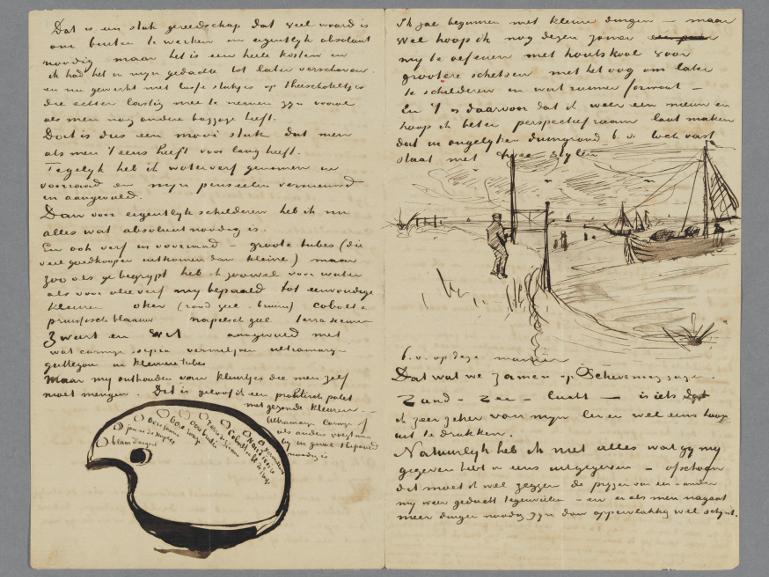 Dat is een stuk gereedschap dat veel waard is
om buiten te werken en eigenlijk absoluut
noodig maar het is een heele kosten en
ik had het in mijn gedachte tot later verschoven
en nu gewerkt met losse stukjes op theeschoteltjes
die echter lastig mee te nemen zyn vooral
als men nog andere bagage heeft.
Doch is dus een mooi stuk dat men
als men 't eens heeft voor lang heeft.
Tegelijk heb ik waterverf genomen in
voorraad en mijn penseelen vernieuwd
en aangevuld.
Dan voor eigentlyk schilderen heb ik nu
alles wat absoluut noodig is.
En ook verf in voorraad – groote tubes (die
veel goedkooper uitkomen dan kleine) maar
zoo als ge begrypt heb ik zoowel voor water
als voor olieverf my bepaald tot eenvoudige
kleuren oker (rood geel – bruin) cobalt &
pruissisch blaauw napelsch geel terra sienna
Zwart en Wit aangevuld met
wat carmyn sepia vermiljoen ultramarijn
guttegom in kleinere tubes
Maar my onthouden van kleurtjes die men zelf
moet mengen. Dit is geloof ik een praktisch palet
met gezonde kleuren.
Ultramarijn carmyn of
als anders voegt men
by in geval 't bepaald
noodig is
Ik zal beginnen met kleine dingen – maar
wel hoop ik nog dezen zomer
my te oefenen met houtskool voor
grootere schetsen met het oog om later
te schilderen in wat ruimer formaat –
En 't is daarvoor dat ik weer een nieuw en
hoop ik beter perspectiefraam laat maken
dat in ongelyken duingrond b.v. ook vast
staat met twee stylen
b.v. op deze manier
Dat wat we zamen op Scheveningen zagen
Zand – Zee – lucht – is iets dat
ik zeer zeker van myn leven wel eens hoop
uit te drukken.
Natuurlyk heb ik niet alles wat gy my
gegeven hebt in eens uitgegeven – ofschoon
dat moet ik wel zeggen de pryzen van een & ander
my weer geducht tegenvielen – en er als men nagaat
meer dingen noodig zyn dan oppervlakkig wel schynt.